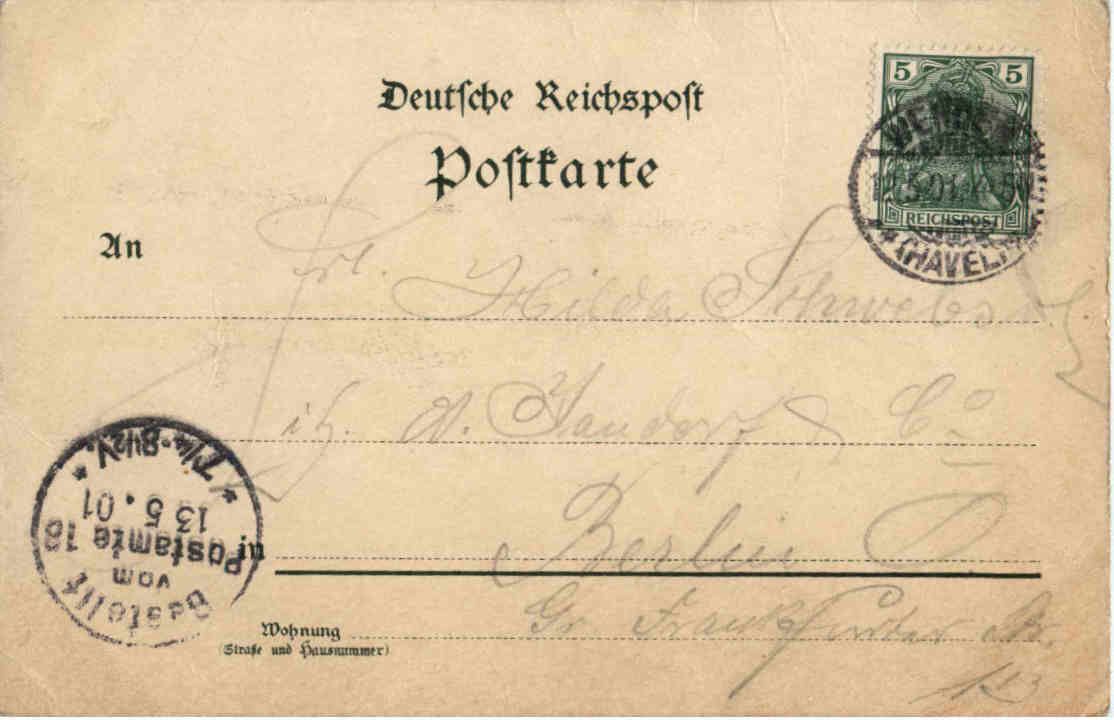 Deutsche Reichspost
Postkarte
5 5
REICHSPOST
WERDER
12.5.01.
(HAVEL)
An Frl. Hilda Schwebs
A. Jandorf & Co
in Berlin O.
Wohnung Gr. Frankfurter Str.
(Straße und Hausnummer)
113
Bestellt
vom
Postamte 18
13 5.01
7¼-8½V.